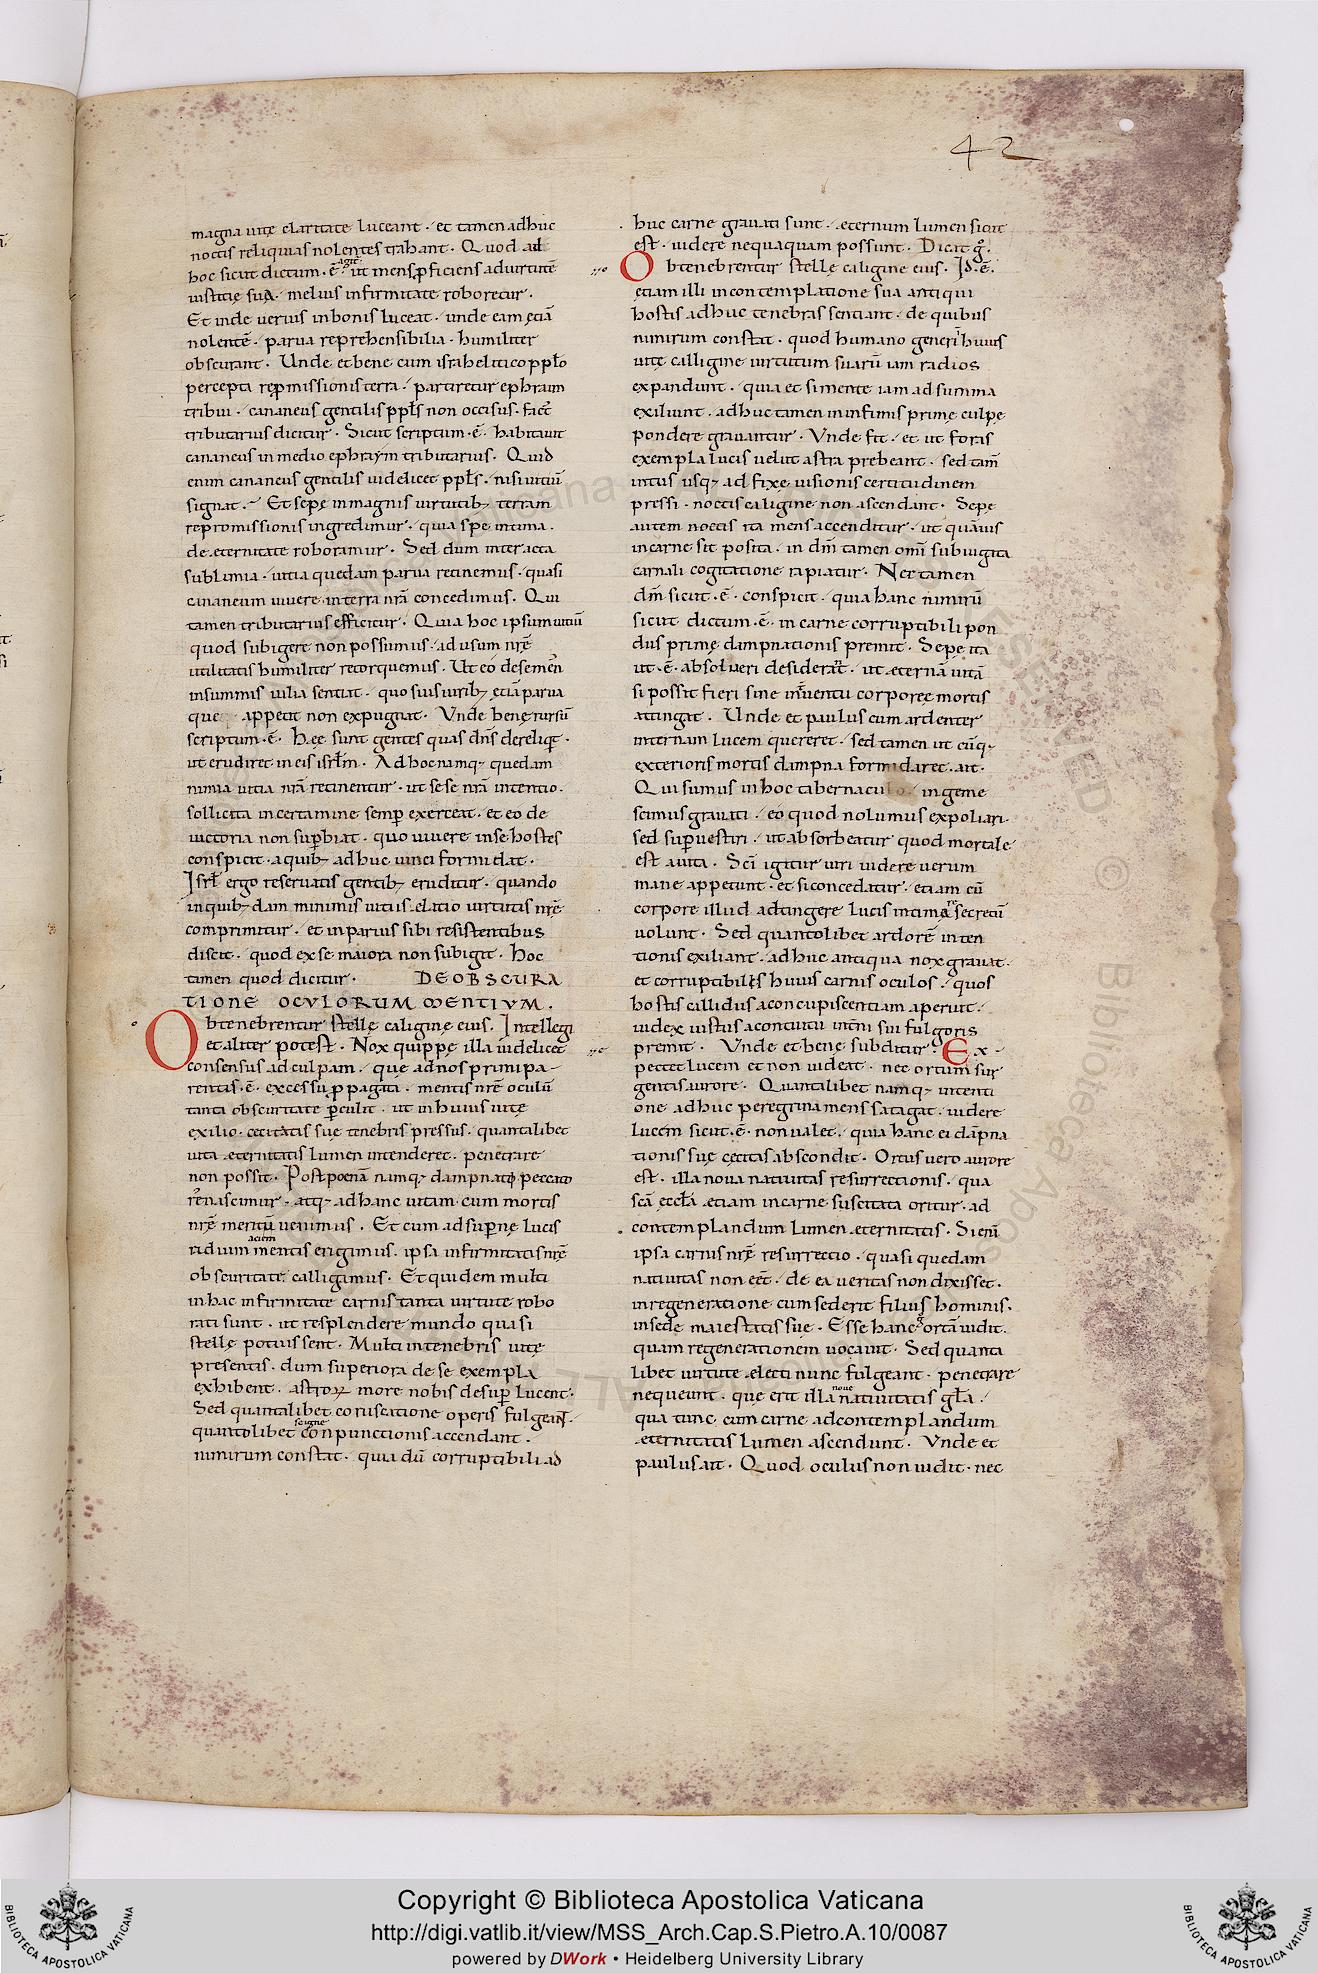 42
magna uitę claritate luceant · et tamen adhuc
noctis reliquias nolentes trahant · Quod ad
agit͛
hoc sicut dictum · ē͛ ut mens ꝓficiens ad uirtutē
iustitię suA · melius infirmitate roboretur ·
Et inde uerius in bonis luceat · unde eam ętiā
nolentē · parua reprehensibilia · humiliter
obscurant · Unde et bene cum israhelitico pp̄lo
percepta repromissionis terra · partiretur ephraim
tribui · cananeus gentilis pp̄ls non occisus · s; fact͛
tributarius dicitur · Sicut scriptum · ē · habitauit
cananeus in medio ephraym tributarius · Quid
enim cananeus gentilis uidelicet pp̄ls · nisi uitiū
signat · Et sępe in magnis uirtutibꝫ terram
repromissionis ingredimur · quia spe intima ·
de ęternitate roboramur · Sed dum inter acta
sublimia · uitia quedam parua retinemus · quasi
cananeum uiuere in terra nrā concedimus · Qui
tamen tributarius efficitur · Quia hoc ipsum uitiū
quod subigere non possumus · ad usum nrę̄
utilitatis humiliter retorquemus · Ut eo de semen͛
in summis uilia sentiat · quo suis uiribꝫ ętiā parua
que appetit non expugnat · Vnde bene rursū
scriptum · ē · Hęc sunt gentes quas dn̄s dereliqt͛ ·
ut erudiret in eis isrl̄m · Ad hoc namqꝫ quedam
nimia uitia nrā retinentur · ut sese nrā intentio ·
sollicita in certamine semꝑ exerceat · et eo de
uictoria non suꝑbiat · quo uiuere in se hostes
conspicit · a quibꝫ adhuc uinci formidat ·
Isrl̄ ergo reseruatis gentibꝫ eruditur · quando
in quibꝫdam minimis uitiis elatio uirtutis nrę̄
comprimitur · et in paruis sibi resistentibus
discit · quod ex se maiora non subigit · Hoc
tamen quod dicitur · DE OBSCURA
TIONE OCVLORUM MENTIVM ·
Obtenebrentur stellę caliginę eius · Intellegi
et aliter potest · Nox quippę illa uidelicet
consensus ad culpam · que ad nos primi pa-
rentis · ē · excessu ꝓpagata · mentis nrę̄ oculū
tanta obscuritate ꝑculit · ut in huius uitę
exilio · cecitatis suę tenebris pressus · quantalibet
uita ęternitatis lumen intenderet · penetrare
non possit · Post poenā namqꝫ dampnati peccato
rēs nascimur · atqꝫ ad hanc uitam cum mortis
nrę̄ meritū uenimus · Et cum ad suꝑnę lucis
aciem
radium mentis erigimus · ipsa infirmitatis nrę̄
obscuritate calligimus · Et quidem multi
in hac infirmitate carnis tanta uirtute robo
rati sunt · ut resplendere mundo quasi
stellę potuissent · Multi in tenebris uitę
presentis · dum superiora de se exempla
exhibent · astroꝝ more nobis desuꝑ lucent ·
Sed quantalibet coruscatione operis fulgeant ·
se igne
quantolibet conpunctionis accendant ·
nimirum constat · quia dū corruptibili ad
huc carne grauati sunt · ęternum lumen sicut
est · uidere nequaquam possunt · Dicit g͛ ·
Obtenebrentur stellę caligine eius · Id · ē ·
etiam illi in contemplatione sua antiqui
hostis adhuc tenebras sentiant · de quibus
nimirum constat · quod humano generi huius
uitę calligine uirtutum suarū iam radios
expandunt · quia et si mente iam ad summa
exiliunt · adhuc tamen in infimis primę culpę
pondere grauantur · Vnde fit · et ut foras
exempla lucis uelut astra prebeant · sed tam̄
intus usqꝫ ad fixę uisionis certitudinem
pressi · noctis caligine non ascendant · Sępe
autem noctis ita mens accenditur · ut quāuis
in carne sit posita · in dm̄ tamen omī subiugita
carnali cogitatione rapiatur · Nec tamen
dm̄ sicut · ē · conspicit · quia hanc nimirū
sicut dictum · ē · in carne corruptibili pon
dus primę dampnationis premit · Sępe ita
ut · ē · absolueri desiderat · ut ęternā uitā
si possit fieri sine interuentu corporeę mortis
attingat · Unde et paulus cum ardenter
internam lucem quereret · sed tamen ut cūqꝫ
exterioris mortis dampna formidaret · ait ·
Qui sumus in hoc tabernaculo · ingeme
scimus grauati · eo quod nolumus expoliari ·
sed suꝑuestiri · ut absorbeatur quod mortale
est a uita · Sc̄i igitur uiri uidere uerum
mane appetunt · et si concedatur · etiam cū
corpore illud adtingere lucis intimę secretū
uolunt · Sed quantolibet ardorē inten
tionis exiliant · adhuc antiqua nox grauat ·
et corruptibiles huius carnis oculos · quos
hostis callidus ad concupiscentiam aperuit ·
iudex iustus a contuitu intn̄i sui fulgoris
premit · Vnde et bene subditur · Ex-
pectet lucem et non uideat · nec ortum sur
gentis aurorę · Quantalibet namqꝫ intenti
one adhuc peregrina mens satagat · uidere
lucem sicut · ē · non ualet · quia hanc ei dāpna
tionis suę cęcitas abscondit · Ortus uero aurorę
est · illa noua natiuitas resurrectionis · qua
scā ęccl̄a etiam in carne suscitata oritur · ad
contemplandum lumen ęternitatis · Si enī
ipsa carnis nrę̄ resurrectio · quasi quedam
natiuitas non eēt · de ea ueritas non dixisset ·
in regeneratione cum sederit filius hominis ·
in sede maiestatis suę · Esse hanc g͛ ortā uidit ·
quam regenerationem uocauit · Sed quanta
libet uirtute electi nunc fulgeant · penetrare
noue
nequeunt · que erit illa natiuitatis gl̄a ·
qua tunc cum carne ad contemplandum
ęternitatis lumen ascendunt · Vnde et
paulus ait · Quod oculus non uidit · nec
Copyright © Biblioteca Apostolica Vaticana
http://digi.vatlib.it/view/MSS_Arch.Cap.S.Pietro.A.10/0087
powered by DWork • Heidelberg University Library
BIBLIOTECA APOSTOLICA VATICANA
BIBLIOTECA APOSTOLICA VATICANA